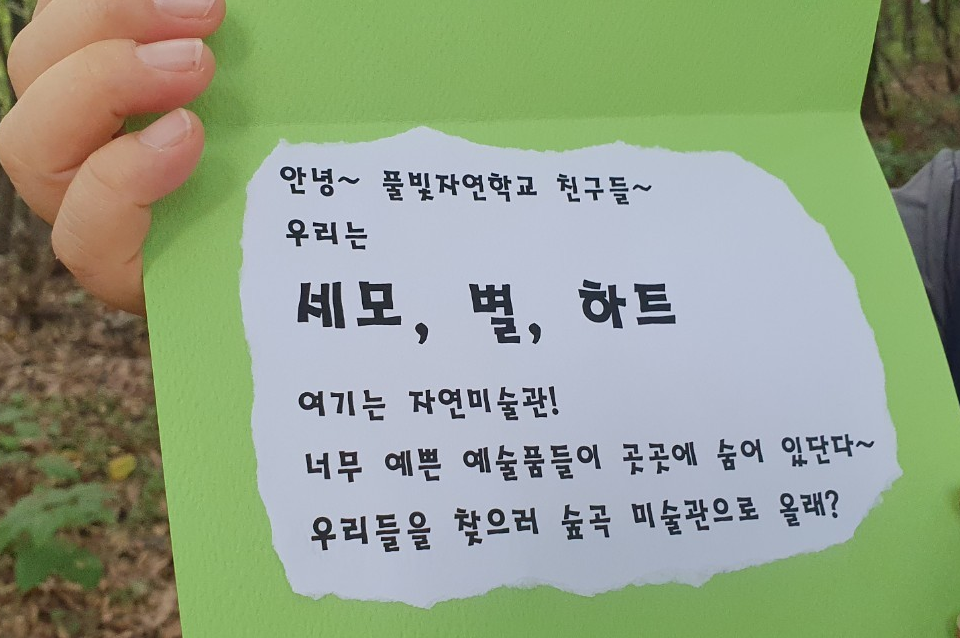 안녕~ 풀빛자연학교 친구들~
우리는
세모, 별, 하트
여기는 자연미술관!
너무 예쁜 예술품들이 곳곳에 숨어 있단다~
우리들을 찾으러 숲곡 미술관으로 올래?